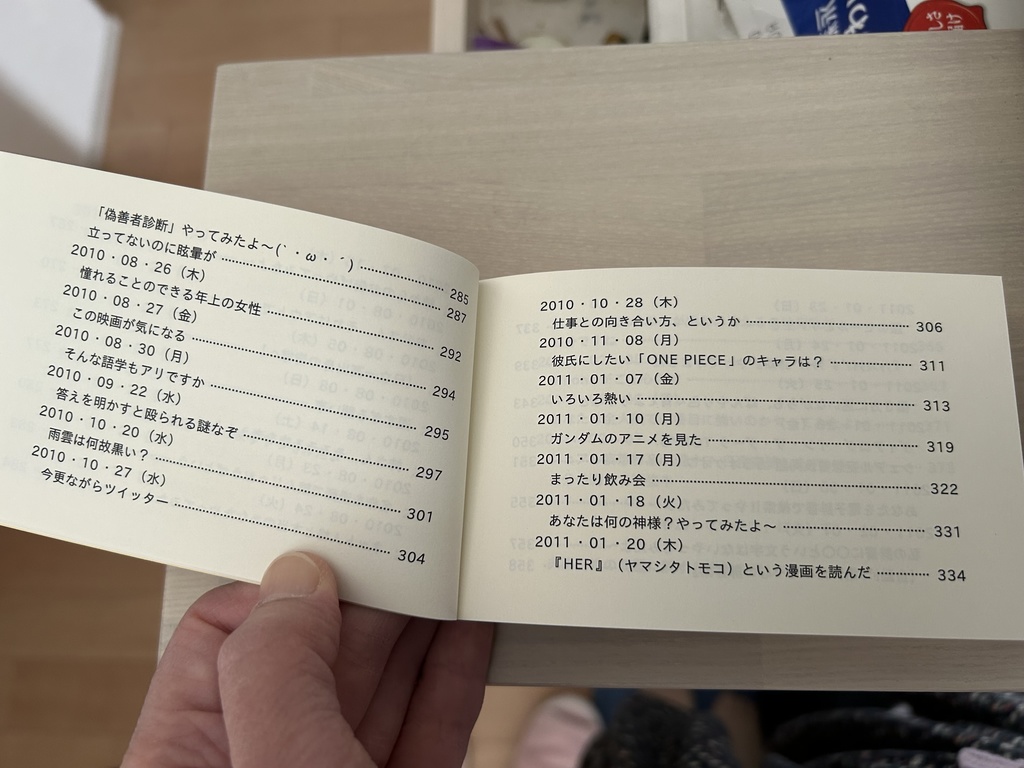 「偽善者診断」やってみたよ〜(｀・ω・´) 285
立ってないのに眩暈が 287
2010・08・26（木）
憧れることのできる年上の女性 292
2010・08・27（金）
この映画が気になる 294
2010・08・30（月）
そんな語学もアリですか 295
2010・09・22（水）
答えを明かすと殴られる謎なぞ 297
2010・10・20（水）
雨雲は何故黒い？ 301
2010・10・27（水）
今更ながらツイッター 304
2010・10・28（木）
仕事との向き合い方、というか 306
2010・11・08（月）
彼氏にしたい「ONE PIECE」のキャラは？ 311
2011・01・07（金）
いろいろ熱い 313
2011・01・10（月）
ガンダムのアニメを見た 319
2011・01・17（月）
まったり飲み会 322
2011・01・18（火）
あなたは何の神様？やってみたよ〜 331
2011・01・20（木）
『HER』（ヤマシタトモコ）という漫画を読んだ 334